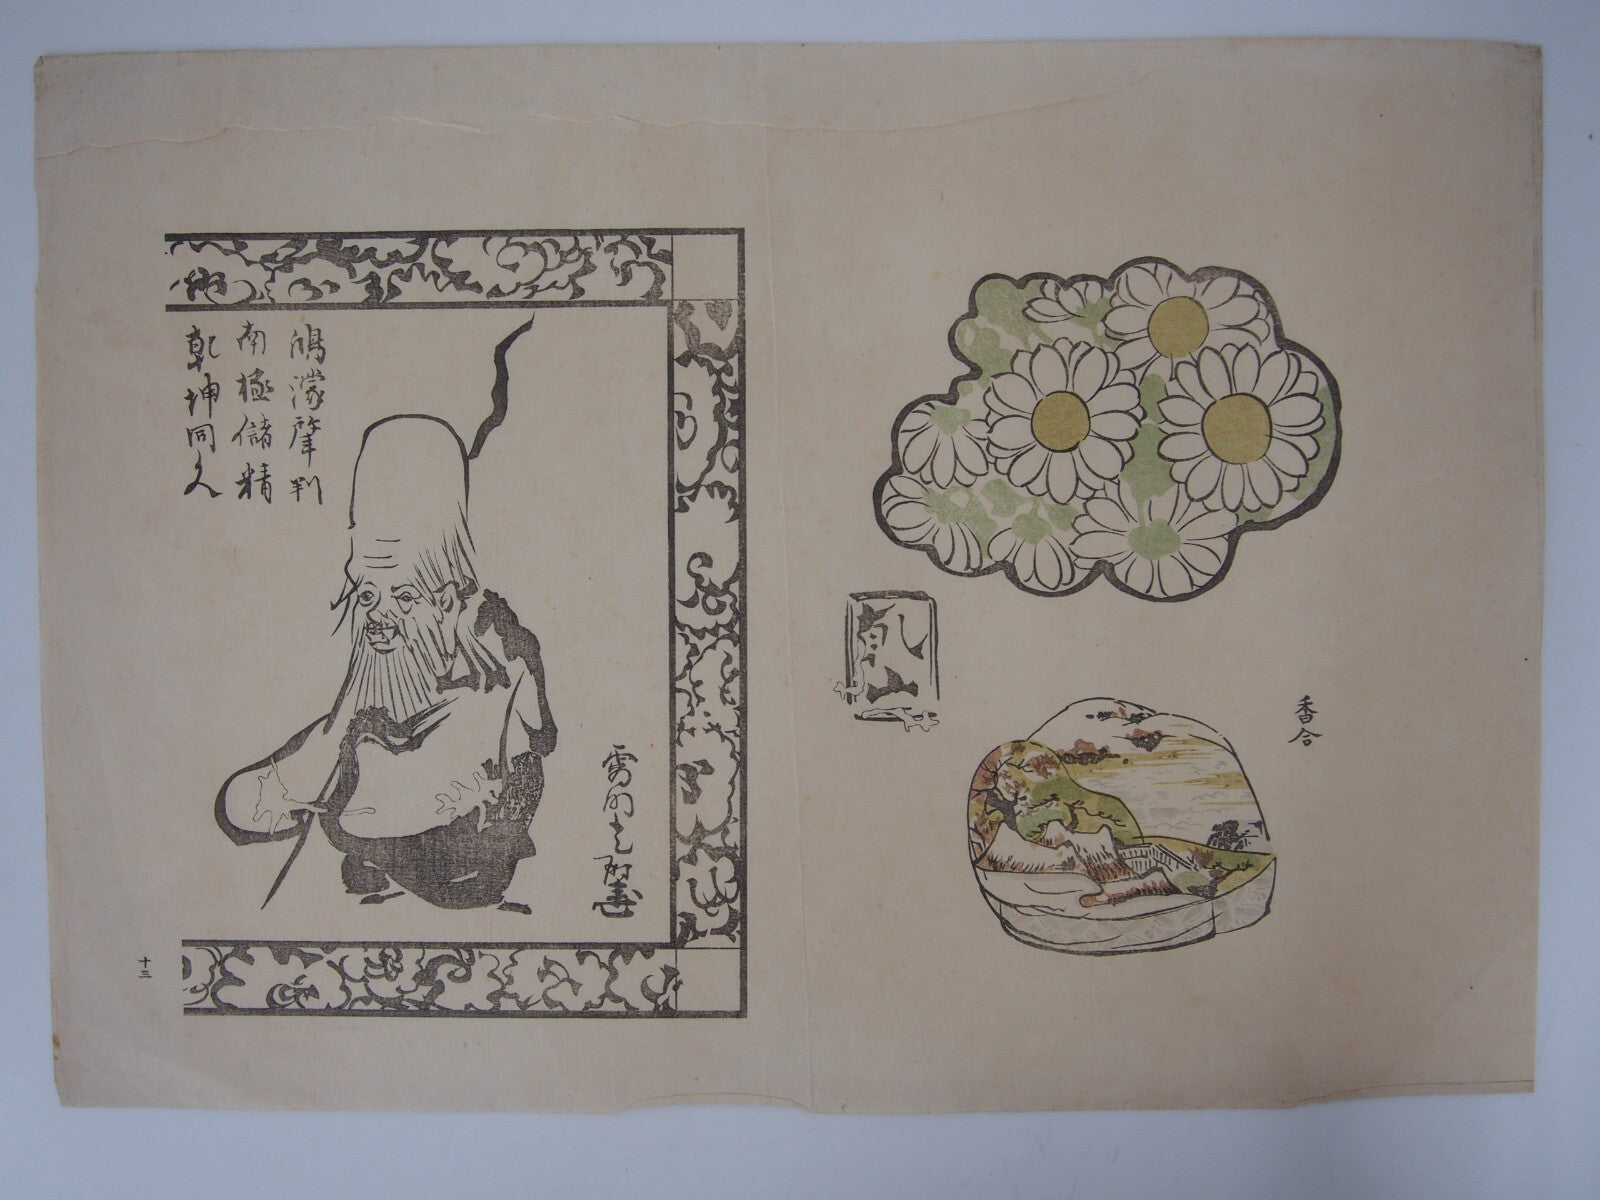 香合
乾山
鴻濛肇判
南極儲精
乾坤同久
十三